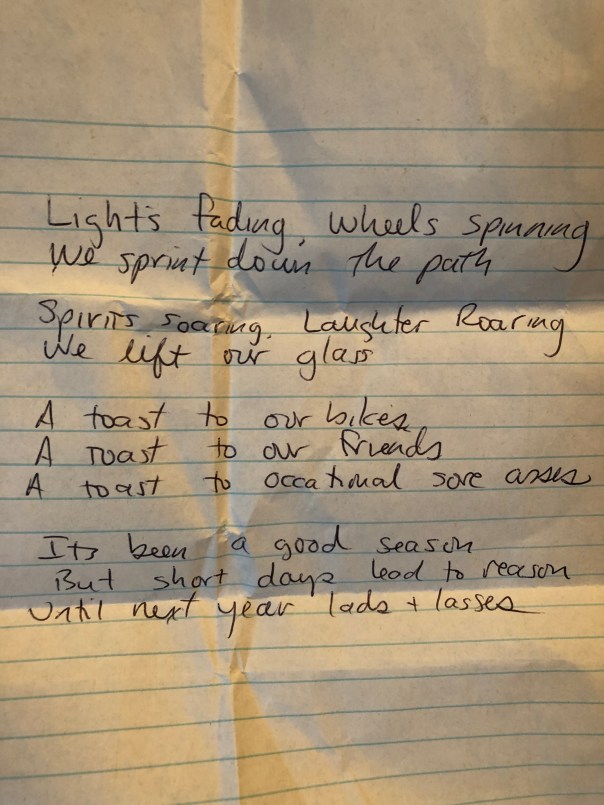 Lights fading, Wheels spinning
We sprint down the path
Spirits soaring, Laughter Roaring
We lift our glass
A toast to our bikes
A toast to our friends
A toast to occational sore asses
Its been a good season
But short days lead to reason
Until next year lads + lasses